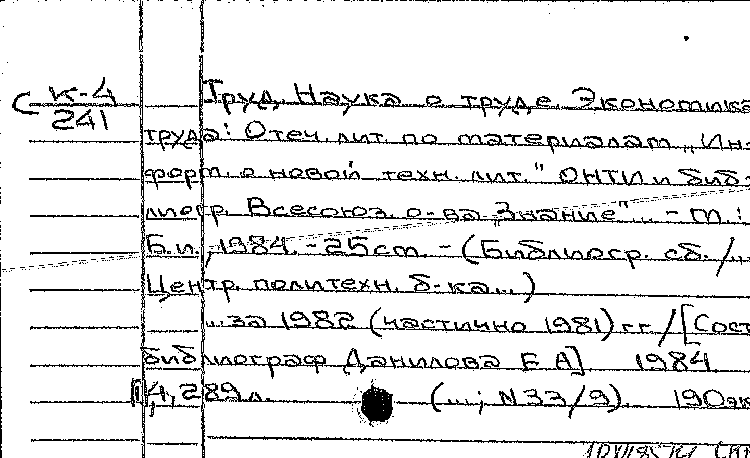 С К-4
241
Труд. Наука о труде. Экономика
труда: Отеч. лит. по материалам „Ин-
форм. о новой техн. лит." ОНТИ и библ-
лиогр. Всесоюз. о-ва „Знание"... - М.:
Б.и., 1984. - 25 см. - (Библиогр. сб. /...
Центр. политехн. б-ка...)
...за 1982 (частично 1981) гг / [Сост
библиограф Данилова Е А]. 1984.
4, 289 л. (...; N 33/9). 190 эк